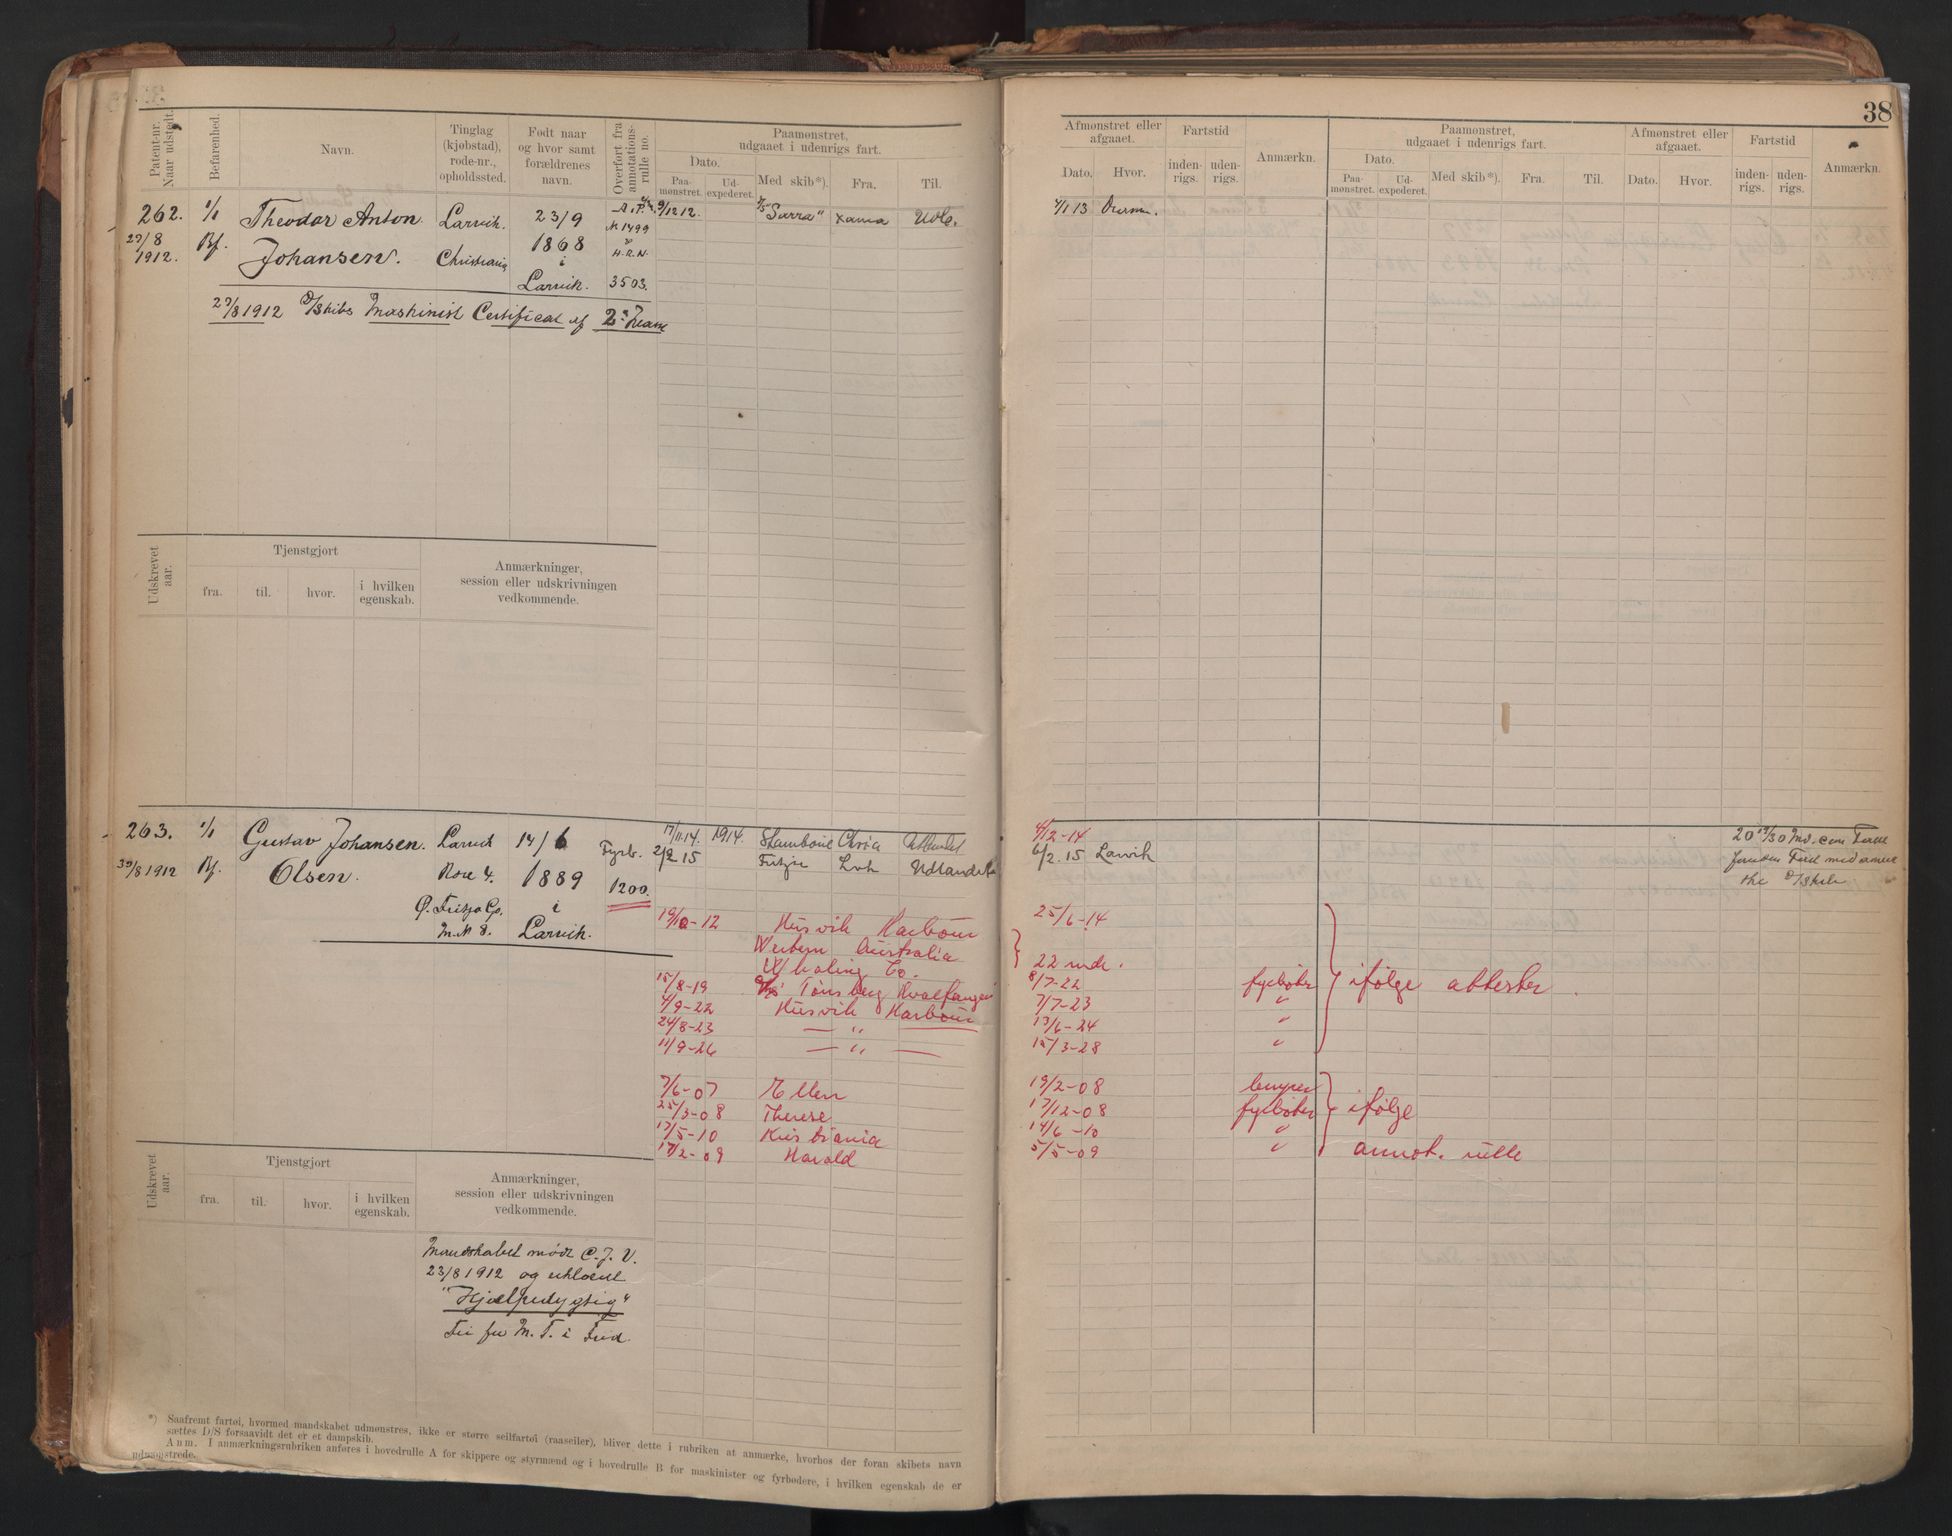 38
Patent-nr. Naar udstedt.
Befarenhed.
Navn.
Tinglag (kjøbstad), rode-nr., opholdssted.
Født naar og hvor samt forældrenes navn.
Overført fra annotationsrulle no.
Paamønstret, udgaaet i udenrigs fart.
Dato.
Paamønstret.
Udexpederet.
Med skib*).
Fra.
Til.
262. 1/1 Theodor Anton Larvik. 23/9 9/12 12. "Sarra" Udl.
29/8 1912. Bf. Johansen. Christiania 1868 i Larvik. No 1499 H.R.N. 3503.
29/8 1912 D/Skibs Maskinist Certificat af 2den Klasse
Udskrevet aar.
Tjenstgjort
fra. til. hvor. i hvilken egenskab.
Anmærkninger, session eller udskrivningen vedkommende.
263. 1/1 Gustav Johansen. Larvik 14/6 Fyrb. 17/11.14. 1914. Chria
30/8 1912 Bf. Olsen. Rode 4. 1889 1200. 2/2 15 Fritzøe Lvk Udlandet
Ø. Fritzø Gp. i
M.N 8. Larvik.
19/10-12 Husvik Harbour
Western Australia
Whaling Co.
15/8-19 Tønsberg Hvalfangeri
4/9-22 Husvik Harbour
24/8-23 — " —
11/9-26 — " —
7/6-07 Ellen
25/3-08 Therese
17/5-10 Kristiania
17/2-09 Harald
Udskrevet aar.
Tjenstgjort
fra. til. hvor. i hvilken egenskab.
Anmærkninger, session eller udskrivningen vedkommende.
Mandskabet mødt C.J.V.
23/8 1912 og erklæret
"Hjælpedygtig"
Fri for M.T. i Fred.
*) Saafremt fartøi, hvormed mandskabet udmønstres, ikke er større seilfartøi (raaseiler), bliver dette i rubriken at anmærke, hvorhos der foran skibets navn
sættes D/S forsaavidt det er et dampskib.
Anm. I anmærkningsrubriken anføres i hovedrulle A for skippere og styrmænd og i hovedrulle B for maskinister og fyrbødere, i hvilken egenskab de er
udmønstrede.
Afmønstret eller afgaaet.
Dato. Hvor.
Fartstid
indenrigs. udenrigs.
Anmærkn.
Paamønstret, udgaaet i udenrigs fart.
Dato.
Paamønstret. Udexpederet. Med skib*). Fra. Til.
Afmønstret eller afgaaet.
Dato. Hvor.
Fartstid
indenrigs. udenrigs.
Anmærkn.
4/1 13
4/12-14
6/2.15 Larvik
25/6-14
22 mdr.
8/7-22 fyrbøter ifølge attester.
7/7-23 "
13/6-24 "
15/3-28 "
19/2-08 lemper
17/12-08 fyrbøter ifølge
14/6-10 "
5/5-09 " annot. rulle